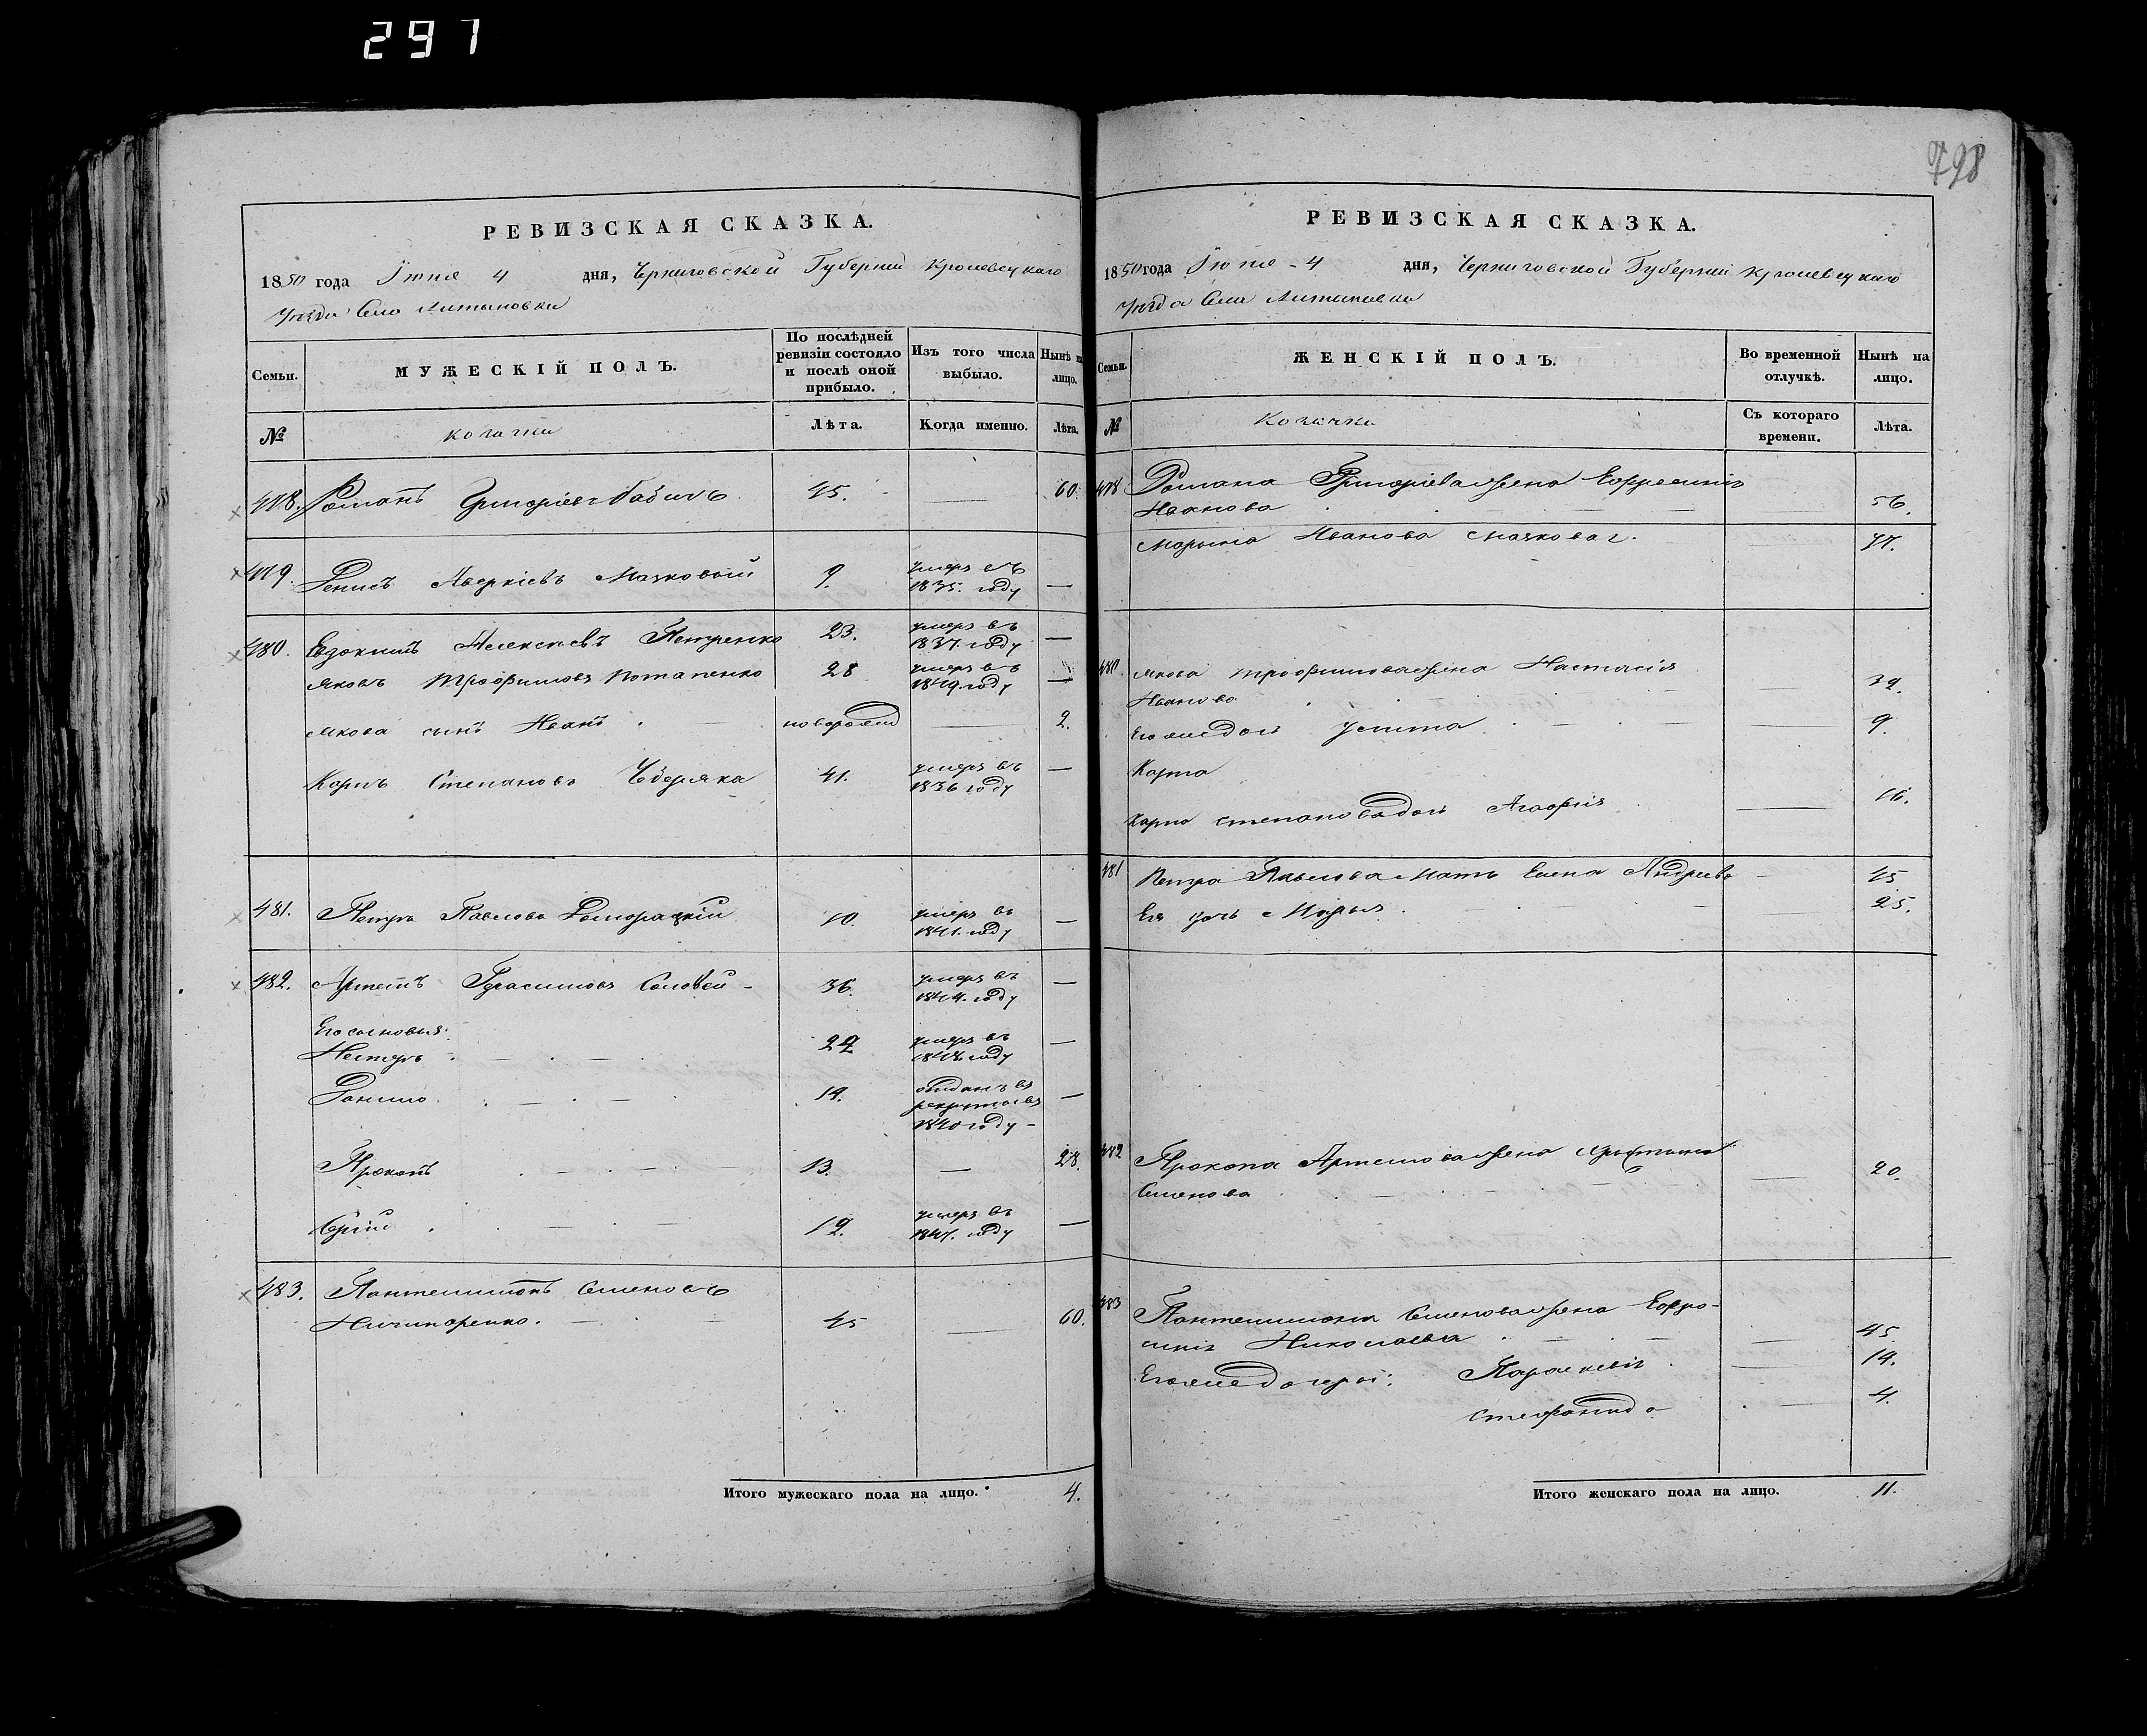 297
798
РЕВИЗСКАЯ СКАЗКА.
1850 года Іюня 4 дня, Черниговской Губерніи Кролевецкаго
Уезда Села Литыновки
Семьи. МУЖЕСКІЙ ПОЛЪ. По послѣдней ревизіи состояло и послѣ оной прибыло. Изъ того числа выбыло. Нынѣ на лицо.
№ козачки Лѣта. Когда именно. Лѣта.
478. Романъ Григоріевъ Бабичъ 45. — 60.
479. Денисъ Аверкіевъ Маяковой 9. умеръ въ 1835. году —
480. Евдокимъ Алексѣевъ Петренко 23. умеръ въ 1837. году —
Яковъ Трофимовъ Потапенко 28 умеръ въ 1849 году —
Якова сынъ Иванъ. новорожд — 2.
Карпъ Степановъ 41. умеръ въ 1836 году —
481. Петръ Павловъ 10. умеръ въ 1841. году —
482. Артемъ Герасимовъ Соловей 36. умеръ въ 1844. году —
Его сыновья:
Нестеръ 22 умеръ въ году —
Данило 19. отданъ въ рекруты въ 1840 году —
Прокопъ 13. — 28.
Сергій 12. умеръ въ 1847. году —
483. Пантелимонъ Семеновъ
Ничипоренко. 45 — 60.
Итого мужескаго пола на лицо. 4.
РЕВИЗСКАЯ СКАЗКА.
1850 года Іюня 4 дня, Черниговской Губерніи Кролевецкаго
Уезда Села Литыновки
Семьи. ЖЕНСКІЙ ПОЛЪ. Во временной отлучкѣ. Нынѣ на лицо.
№ Козачки Съ котораго времени. Лѣта.
478 Романа Григоріева жена Ефросинія
Иванова — 56.
Марьина Иванова —
480. Якова Трофимова жена Настасія
Иванова — 39.
Его же дочь Устина — 9.
Карпа
Карпа Степанова дочь Агафія — 16.
481 Петра Павлова мать Елена Андреева — 45
Ея дочь Марья — 25.
482 Прокопа Артемова жена
Семенова — 20.
483 Пантелимона Семенова жена Ефро-
синія Николаева — 45.
Его же дочери: Параскевія — 14.
Стефанида — 4.
Итого женскаго пола на лицо. 11.